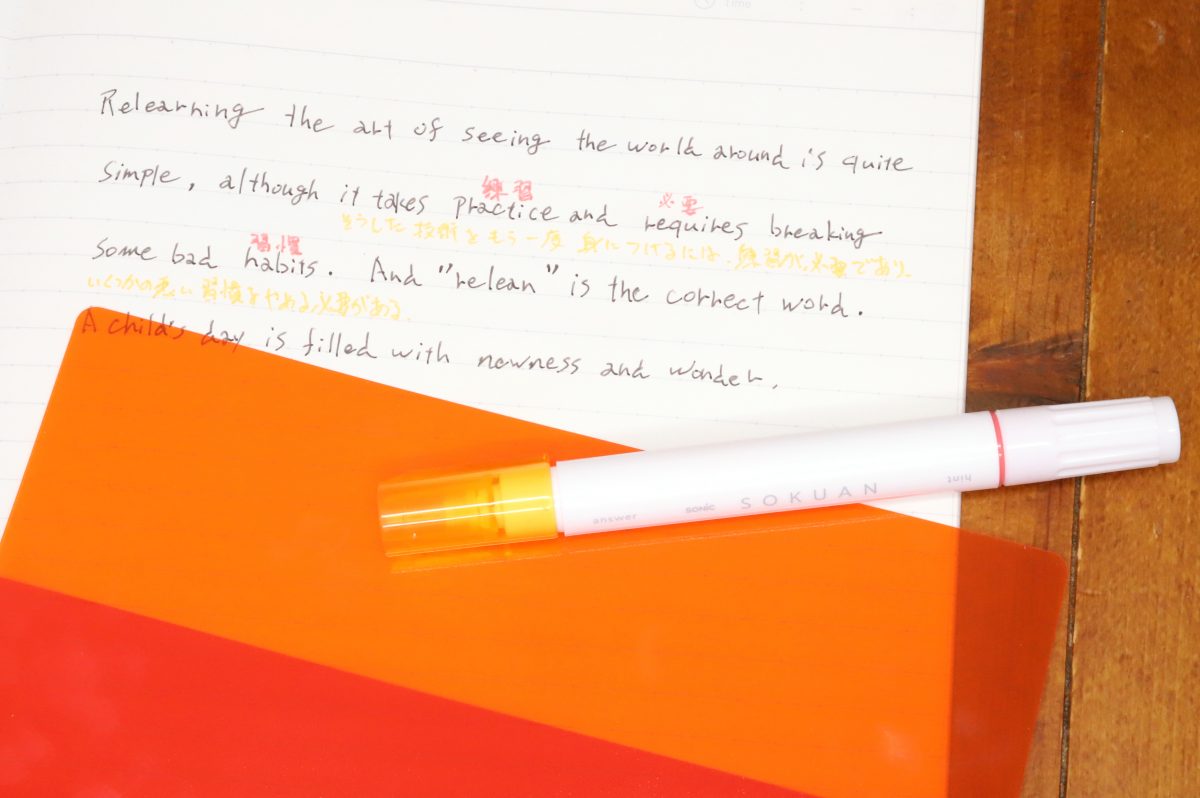 Time
Relearning the art of seeing the world around is quite
練習 必要
simple, although it takes practice and requires breaking
そうした技術をもう一度身につけるには、練習が必要であり、
習慣
some bad habits. And "relean" is the correct word.
いくつかの悪い習慣をやめる必要がある。
A child's day is filled with newness and wonder.
answer SONiC SOKUAN hint